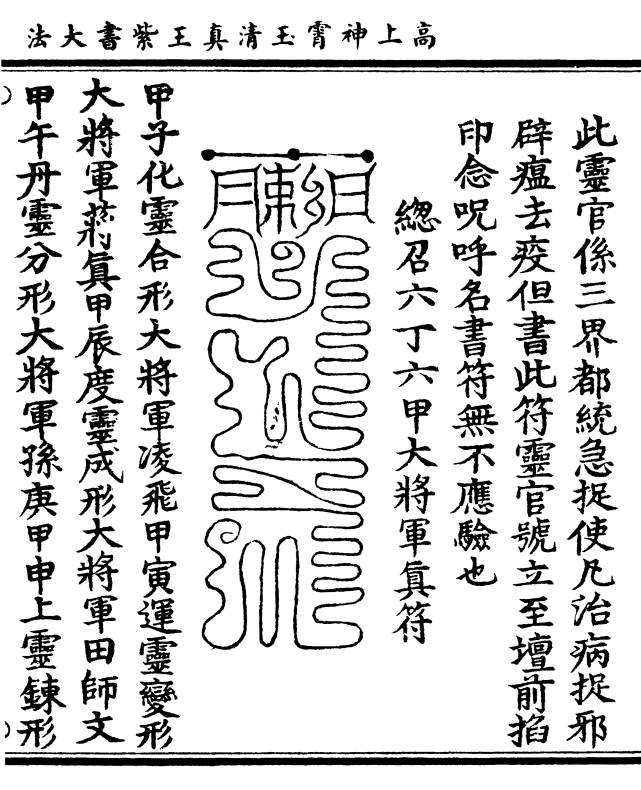 高上神霄玉清真王紫書大法
此靈官係三界都統急捉使凡治病捉邪
辟瘟去疫但書此符靈官號立至壇前掐
印念呪呼名書符無不應驗也
總召六丁六甲大將軍真符
甲子化靈合形大將軍凌飛甲寅運靈變形
大將軍蔣真甲辰度靈成形大將軍田師文
甲午丹靈分形大將軍孫庚甲申上靈鍊形